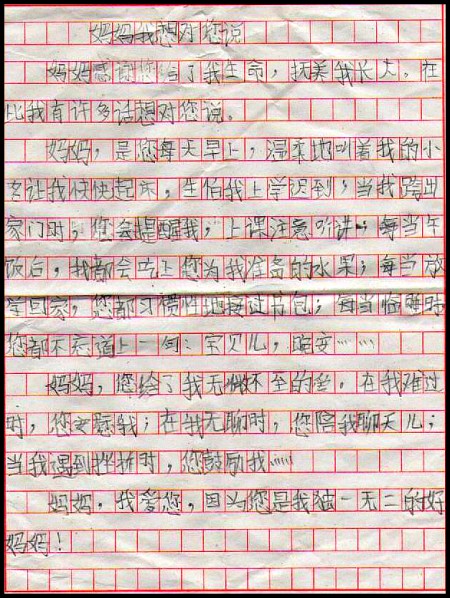 妈妈我想对您说
妈妈感谢您给了我生命,抚养我长大。在
比我有许多话想对您说。
妈妈,是您每天早上,温柔地叫着我的小
名让我快快起床,生怕我上学迟到;当我跨出
家门时,您会提醒我,上课注意听讲;每当午
饭后,我都会吃上您为我准备的水果;每当放
学回家,您都习惯性地接过书包;每当临睡时
您都不忘道上一句:宝贝儿,晚安……
妈妈,您给了我无微不至的爱。在我难过
时,您安慰我;在我无聊时,您陪我聊天儿;
当我遇到挫折时,您鼓励我……
妈妈,我爱您,因为您是我独一无二的好
妈妈!